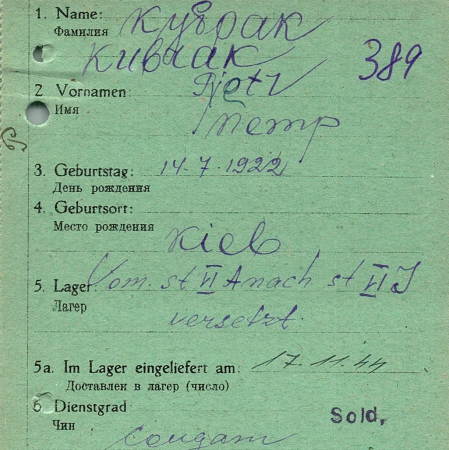 1. Name: Кубрак
Фамилия
Кивлак 389
2 Vornamen: Pjetr
Имя Петр
3. Geburtstag: 14.7.1922
День рождения
4. Geburtsort:
Место рождения
Kieb
5. Lager Vom. st VI A nach st VI J
Лагер versetzt.
5a. Im Lager eingeliefert am: 17.11.44
Доставлен в лагер (число)
6 Dienstgrad Sold.
Чин
солдат